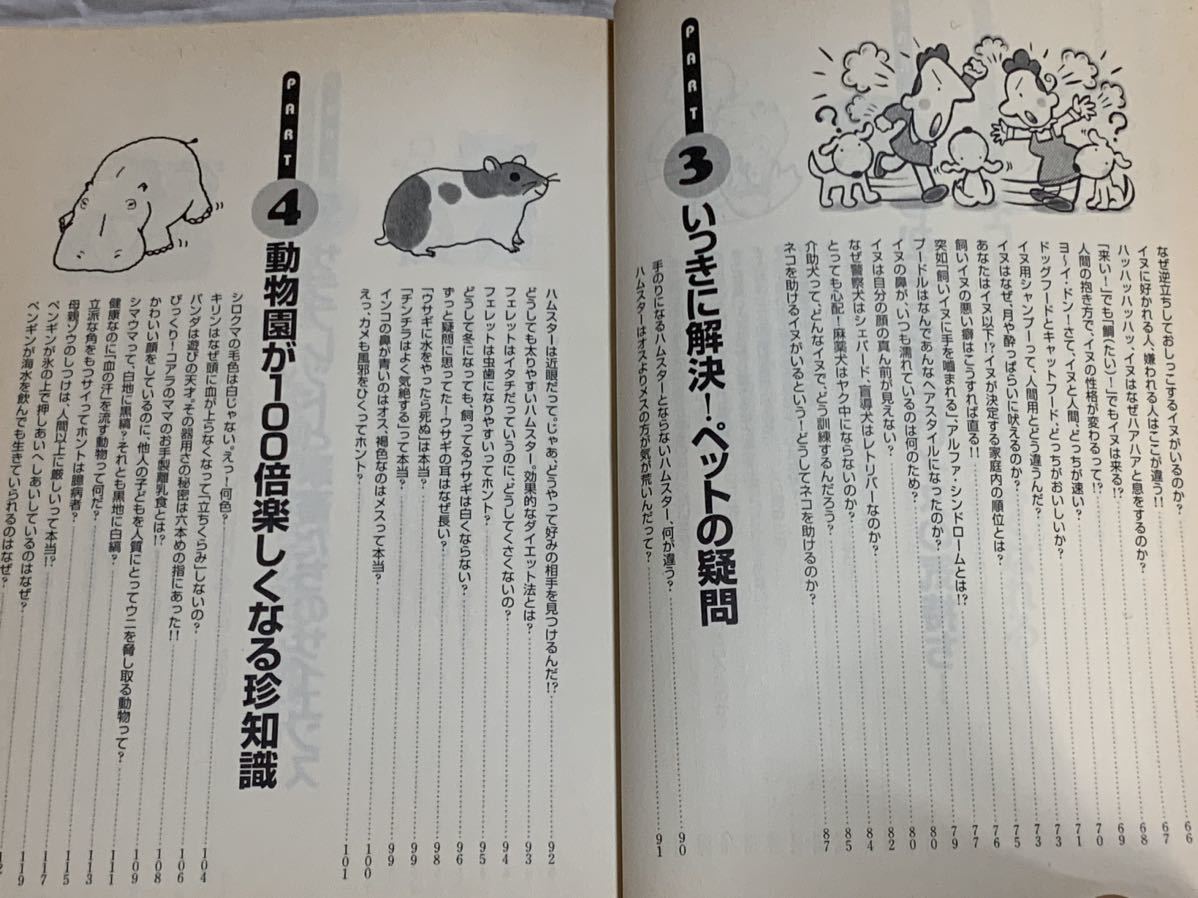 PART
3 いっきに解決!・ペットの疑問
なぜ逆立ちしておしっこするイヌがいるのか? 66
イヌに好かれる人、嫌われる人はここが違う!! 67
ハッハッハッハッ、イヌはなぜハアハアと息をするのか? 68
「来い!」でも「鯛(たい)!」でもイヌは来る!? 69
人間の抱き方で、イヌの性格が変わるって!? 70
ヨ〜イ・ドン!さて、イヌと人間、どっちが速い? 71
ドッグフードとキャットフード、どっちがおいしいか? 73
イヌ用シャンプーって、人間用とどう違うんだ? 73
イヌはなぜ、月や酔っぱらいに吠えるのか? 75
あなたはイヌ以下!?イヌが決定する家庭内の順位とは? 76
飼いイヌの悪い癖はこうすれば直る!! 77
突如「飼いイヌに手を嚙まれる」アルファ・シンドロームとは!? 79
プードルはなんであんなヘアスタイルになったのか? 80
イヌの鼻が、いつも濡れているのは何のため? 80
イヌは自分の顔の真ん前が見えない! 82
なぜ警察犬はシェパード、盲導犬はレトリバーなのか? 84
とっても心配!麻薬犬はヤク中にならないのか? 85
介助犬って、どんなイヌで、どう訓練するんだろう? 87
ネコを助けるイヌがいるという!どうしてネコを助けるのか?
手のりになるハムスターとならないハムスター、何が違う? 90
ハムスターはオスよりメスの方が気が荒いんだって? 91
ハムスターは近眼だって。じゃあ、どうやって好みの相手を見つけるんだ!? 92
どうしても太りやすいハムスター。効果的なダイエット法とは? 93
フェレットはイタチだっていうのに、どうしてくさくないの? 94
フェレットは虫歯になりやすいってホント? 95
どうして冬になっても、飼ってるウサギは白くならない? 96
ずっと疑問に思ってた!ウサギの耳はなぜ長い? 98
「ウサギに水をやったら死ぬ」は本当? 99
「チンチラはよく気絶する」って本当? 99
インコの鼻が青いのはオス、褐色なのはメスって本当? 100
えっ、カメも風邪をひくってホント? 101
PART
4 動物園が100倍楽しくなる珍知識
シロクマの毛色は白じゃない。えっ!何色? 104
キリンはなぜ頭に血が上らなくなって「立ちくらみ」しないの? 106
パンダは遊びの天才。その器用さの秘密は六本めの指にあった!! 108
びっくり!コアラのママのお手製離乳食とは!? 109
かわいい顔をしているのに、他人の子どもを人質にとってウニを脅し取る動物って? 111
シマウマって、白地に黒縞?それとも黒地に白縞? 113
健康なのに「血の汗」を流す動物って何だ? 115
立派な角をもつサイってホントは臆病者? 117
母親ゾウのしつけは、人間以上に厳しいって本当!? 119
ペンギンが氷の上で押しあいへしあいしているのはなぜ?
ペンギンが海水を飲んでも生きていられるのはなぜ?